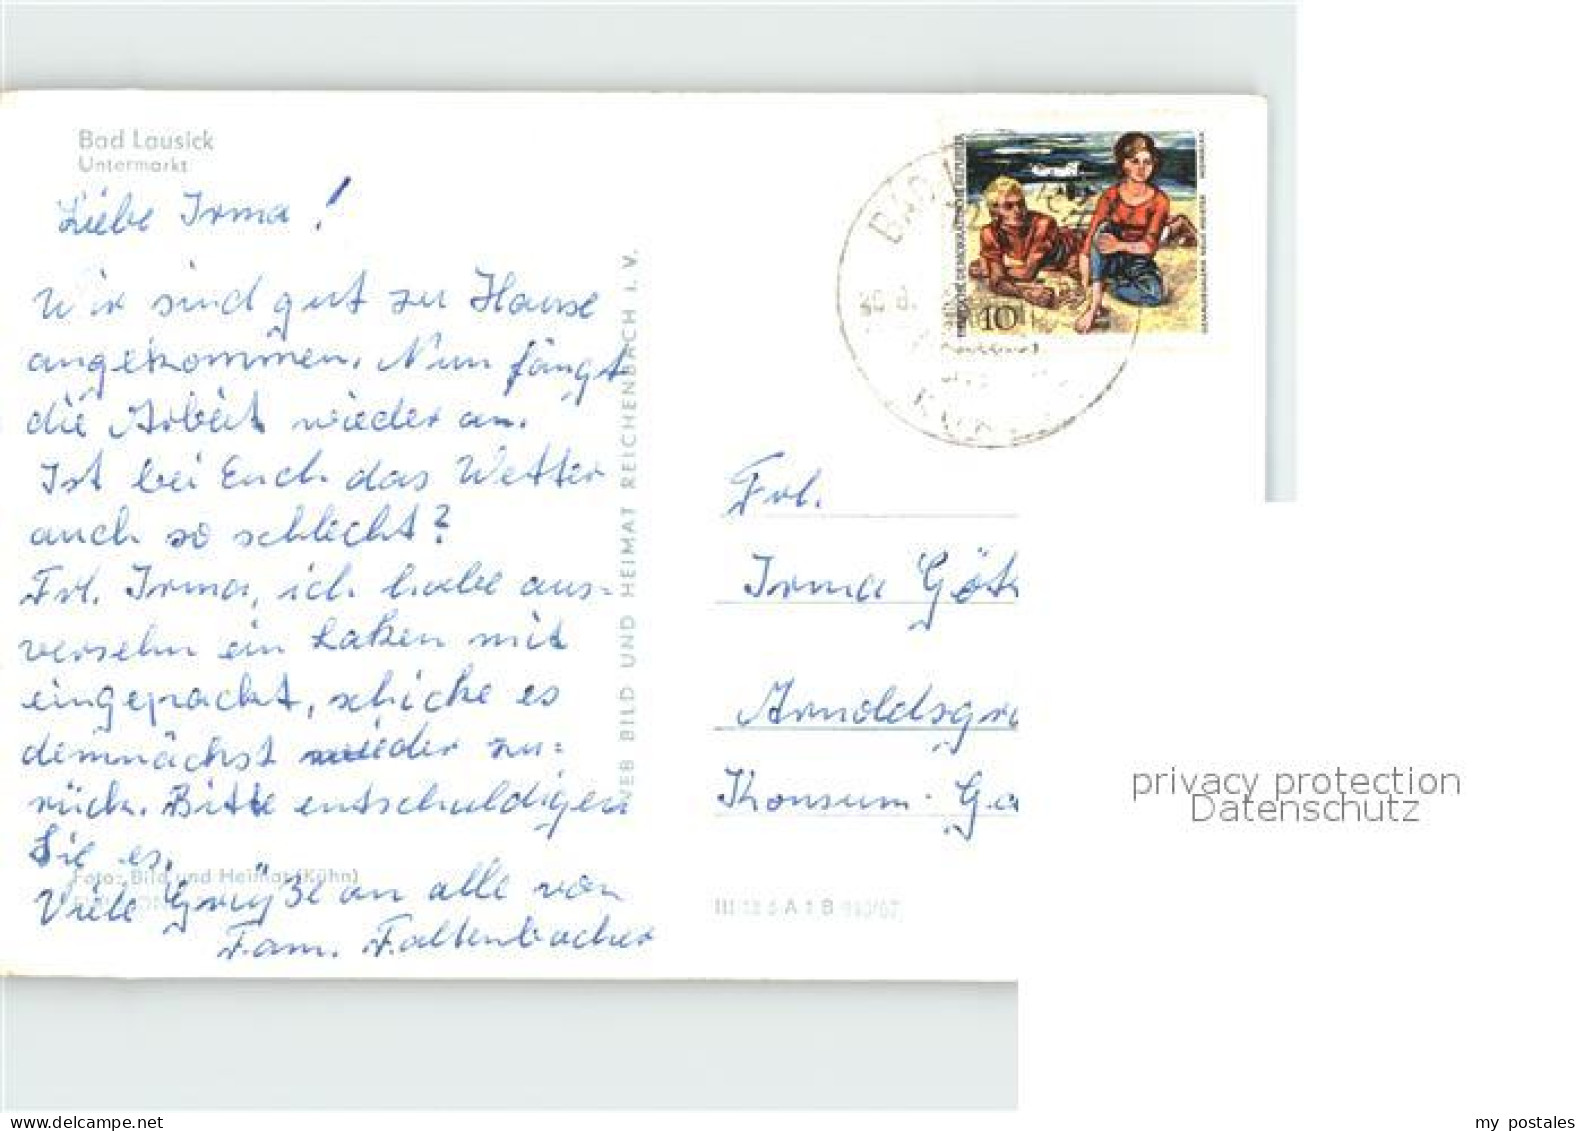 Bad Lausick
Untermarkt
Liebe Irma!
Wir sind gut zu Hause
angekommen. Nun fängt
die Arbeit wieder an.
Ist bei Euch das Wetter
auch so schlicht?
Frl. Irma, ich habe aus=
versehn ein Laken mit
eingepackt, schicke es
demnächst wieder zu=
rück. Bitte entschuldigen
Sie es.
Viele Grüße an alle von
Fam. Faltenbacher
Foto: Bild und Heimat (Kühn)
VEB BILD UND HEIMAT REICHENBACH I. V.
III/18 A 1 B
BAD
30.8.
10
Frl.
Irma Göt
Arnoldsgr
Konsum-Ga
privacy protection
Datenschutz
my postales